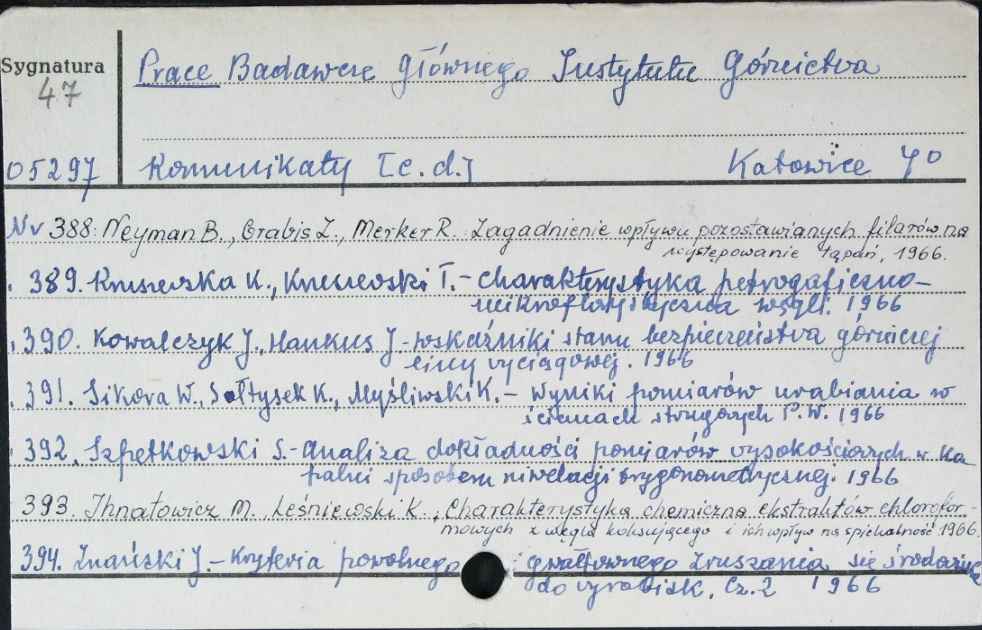 Sygnatura
47
05297
Prace Badawcze Głównego Instytutu Górnictwa
Komunikaty [c.d.] Katowice 4°
Nr 388. Neyman B., Grabis Z., Merker R. Zagadnienie wpływu pozostawianych filarów na
występowanie tąpań, 1966.
389. K., T. – Charakterystyka petrograficzno-
węgli. 1966
390. Kowalczyk J., Hankus J. – wskaźniki stanu bezpieczeństwa górniczej
liny wyciągowej. 1966
391. Sikora W., Sołtysek K., Myśliwski K. – Wyniki pomiarów urabiania w
ścianach strugowych P.W. 1966
392. Szpetkowski S. – Analiza dokładności pomiarów wysokościowych w ko
palni sposobem niwelacji trygonometrycznej. 1966
393. Ihnatowicz M., Leśniewski K., Charakterystyka chemiczna ekstraktów chlorofor-
mowych z węgla koksującego i ich wpływ na spiekalność 1966.
394. Znański J. – Kryteria powolnego i gwałtownego zruszania się
do wyrobisk. Cz. 2 1966